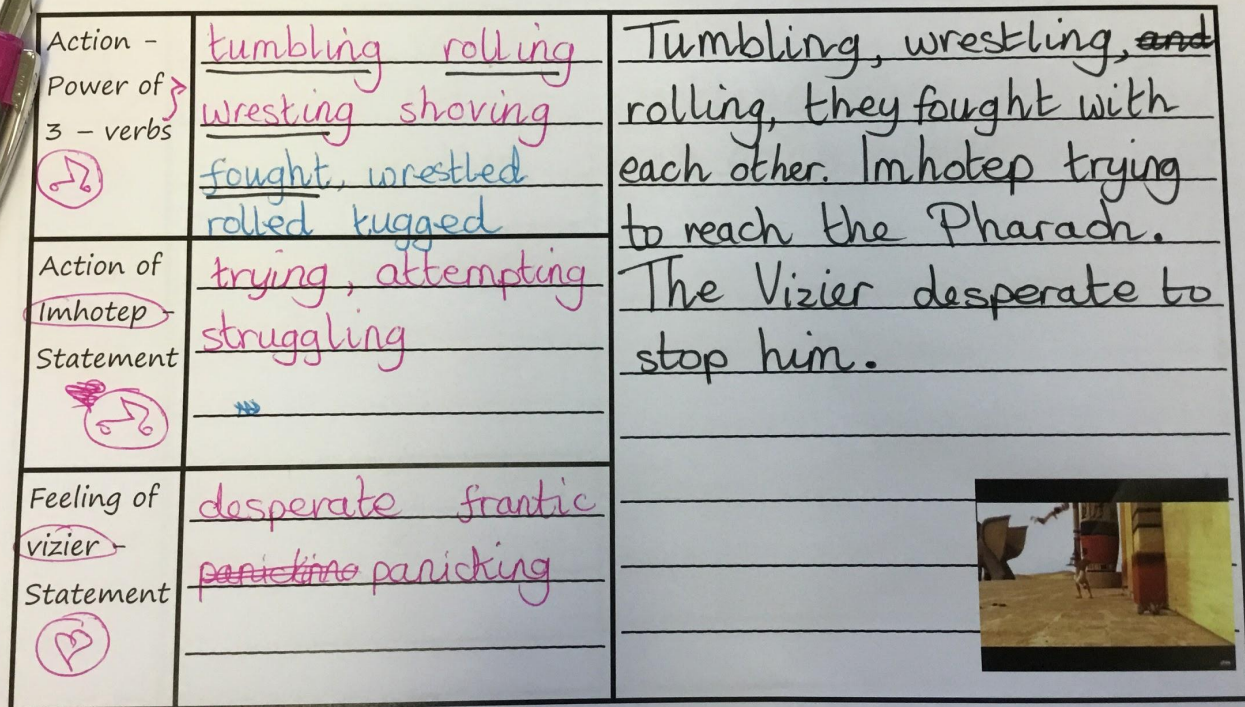 Action -
Power of
3 - verbs
tumbling rolling
wresting shoving
fought, wrestled
rolled tugged
Action of
Imhotep -
Statement
trying, attempting
struggling
Feeling of
vizier -
Statement
desperate frantic
panickino panicking
Tumbling, wrestling, and
rolling, they fought with
each other. Imhotep trying
to reach the Pharaoh.
The Vizier desperate to
stop him.